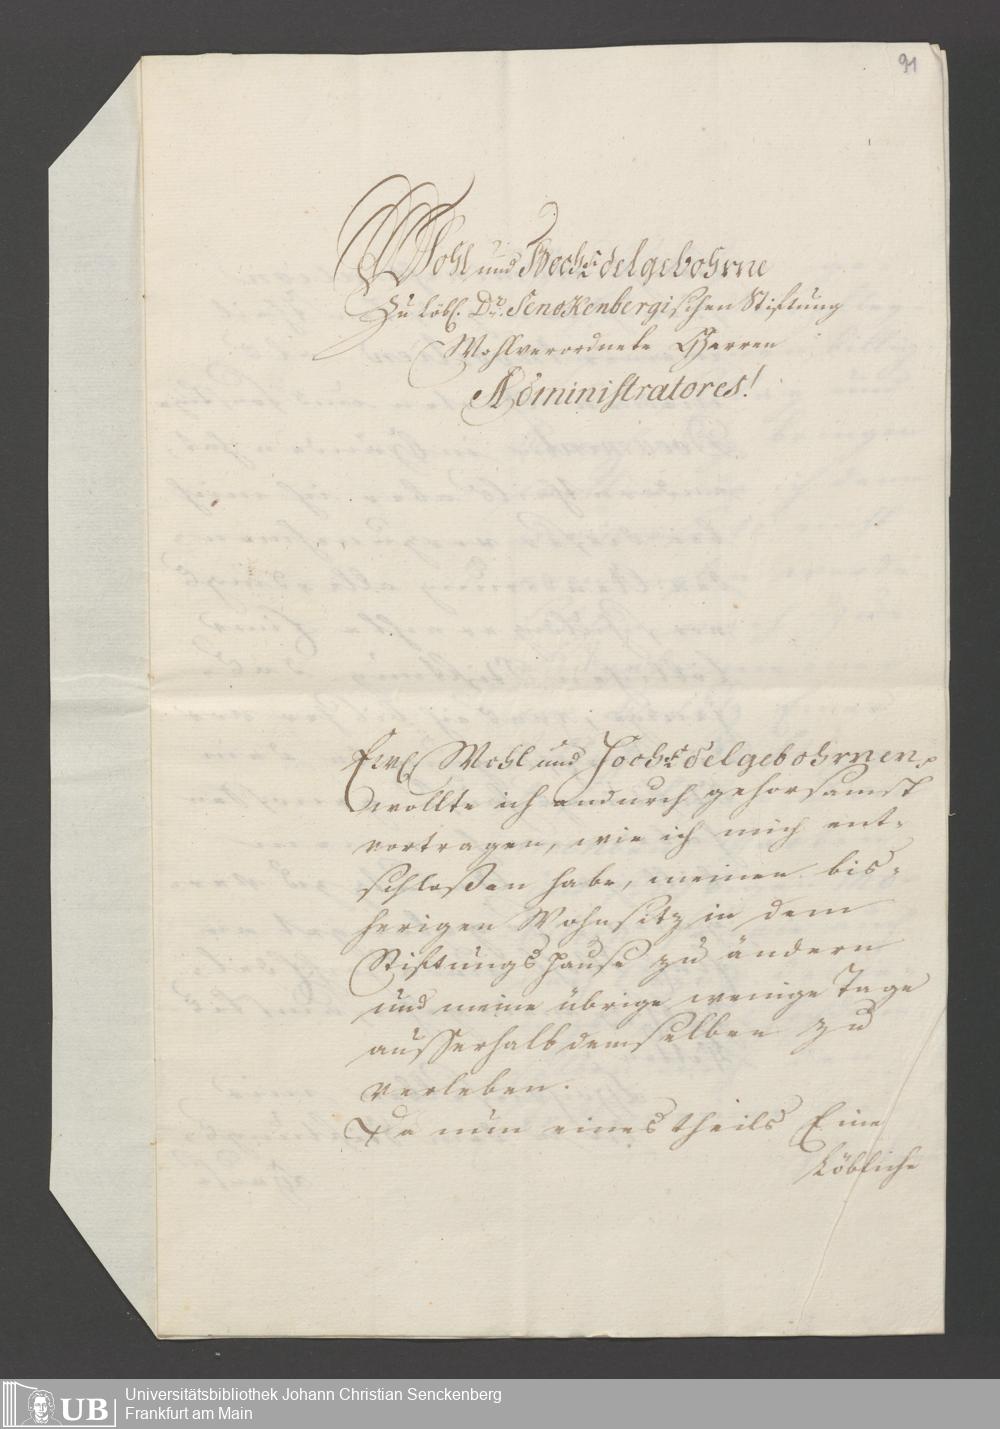 91
Wohl und HochEdelgebohrne
Zu löbl. Dr. Senckenbergischen Stiftung
Wohlverordnete Herren
Administratores!
Ew. Wohl und HochEdelgebohrnen
wollte ich andurch gehorsamst
vortragen, wie ich mich ent-
schloßen habe, meinen bis-
herigen Wohnsitz in dem
Stiftungshause zu ändern
und meine übrige wenige Tage
ausserhalb demselben zu
verleben.
Da nun eines theils Eine
Löbliche
UB
Universitätsbibliothek Johann Christian Senckenberg
Frankfurt am Main